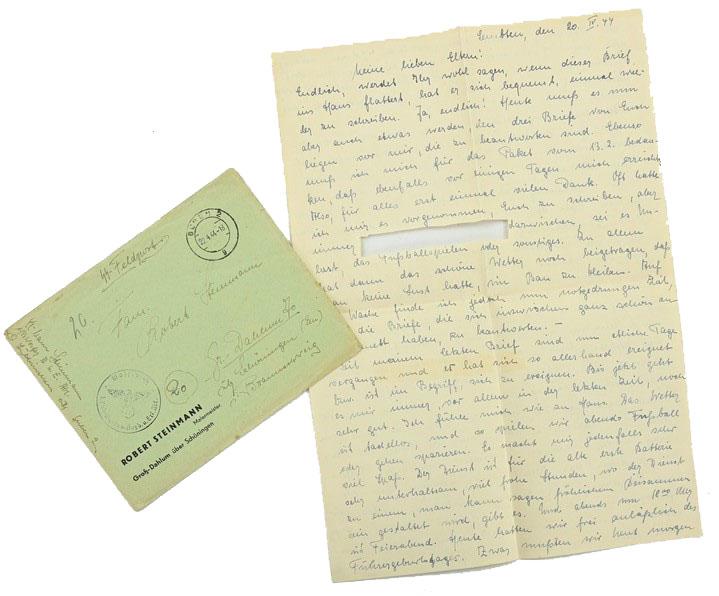 den 20. IV. 44
Meine lieben Eltern!
Endlich, werdet Ihr wohl sagen, wenn dieser Brief
ins Haus flattert, hat er sich bequemt, einmal wie-
der zu schreiben. Ja, endlich! Heute muß es nun
aber auch etwas werden, denn drei Briefe von Euch
liegen vor mir, die zu beantworten sind. Ebenso
muß ich mich für das Paket vom 13.2. bedan-
ken, daß ebenfalls vor einigen Tagen mich erreichte.
Also, für alles erst einmal vielen Dank. Oft hatte
ich mir es vorgenommen, Euch zu schreiben, aber
immer dazwischen, sei es Un-
lust, das Fußballspielen oder sonstiges. Zu allem
hat dann das schöne Wetter noch beigetragen, daß
keine Lust hatte, im Bau zu bleiben. Auf
Wache finde ich jedoch nun notgedrungen Zeit,
die Briefe, die sich inzwischen ganz schön an-
haben, zu beantworten. –
Seit meinem letzten Brief sind nun etliche Tage
vergangen und es hat sich so allerhand ereignet
bzw. ist im Begriff, sich zu ereignen. Bis jetzt geht
es mir immer, vor allem in der letzten Zeit, noch
sehr gut. Ich fühle mich wie zu Haus. Das Wetter
ist tadellos, und so spielen wir abends Fußball
oder gehen spazieren. Es macht mir jedenfalls sehr
viel Spaß. Der Dienst ist für die alte erste Batterie
sehr unterhaltsam, viel frohe Stunden, wo der Dienst
zu einem, man kann sagen fröhlichen Beisammen-
sein gestaltet wird, gibt es. Und abends um 18.00 Uhr
ist Feierabend. Heute hatten wir frei anläßlich des
Führergeburtstages. Zwar mußten wir heut morgen
SS-Feldpost
22.4.44-18
26.
Fam.
Robert Steinmann
Gr. Dahlum 70
Schöningen
Braunschweig
ROBERT STEINMANN
Malermeister
Groß-Dahlum über Schöningen